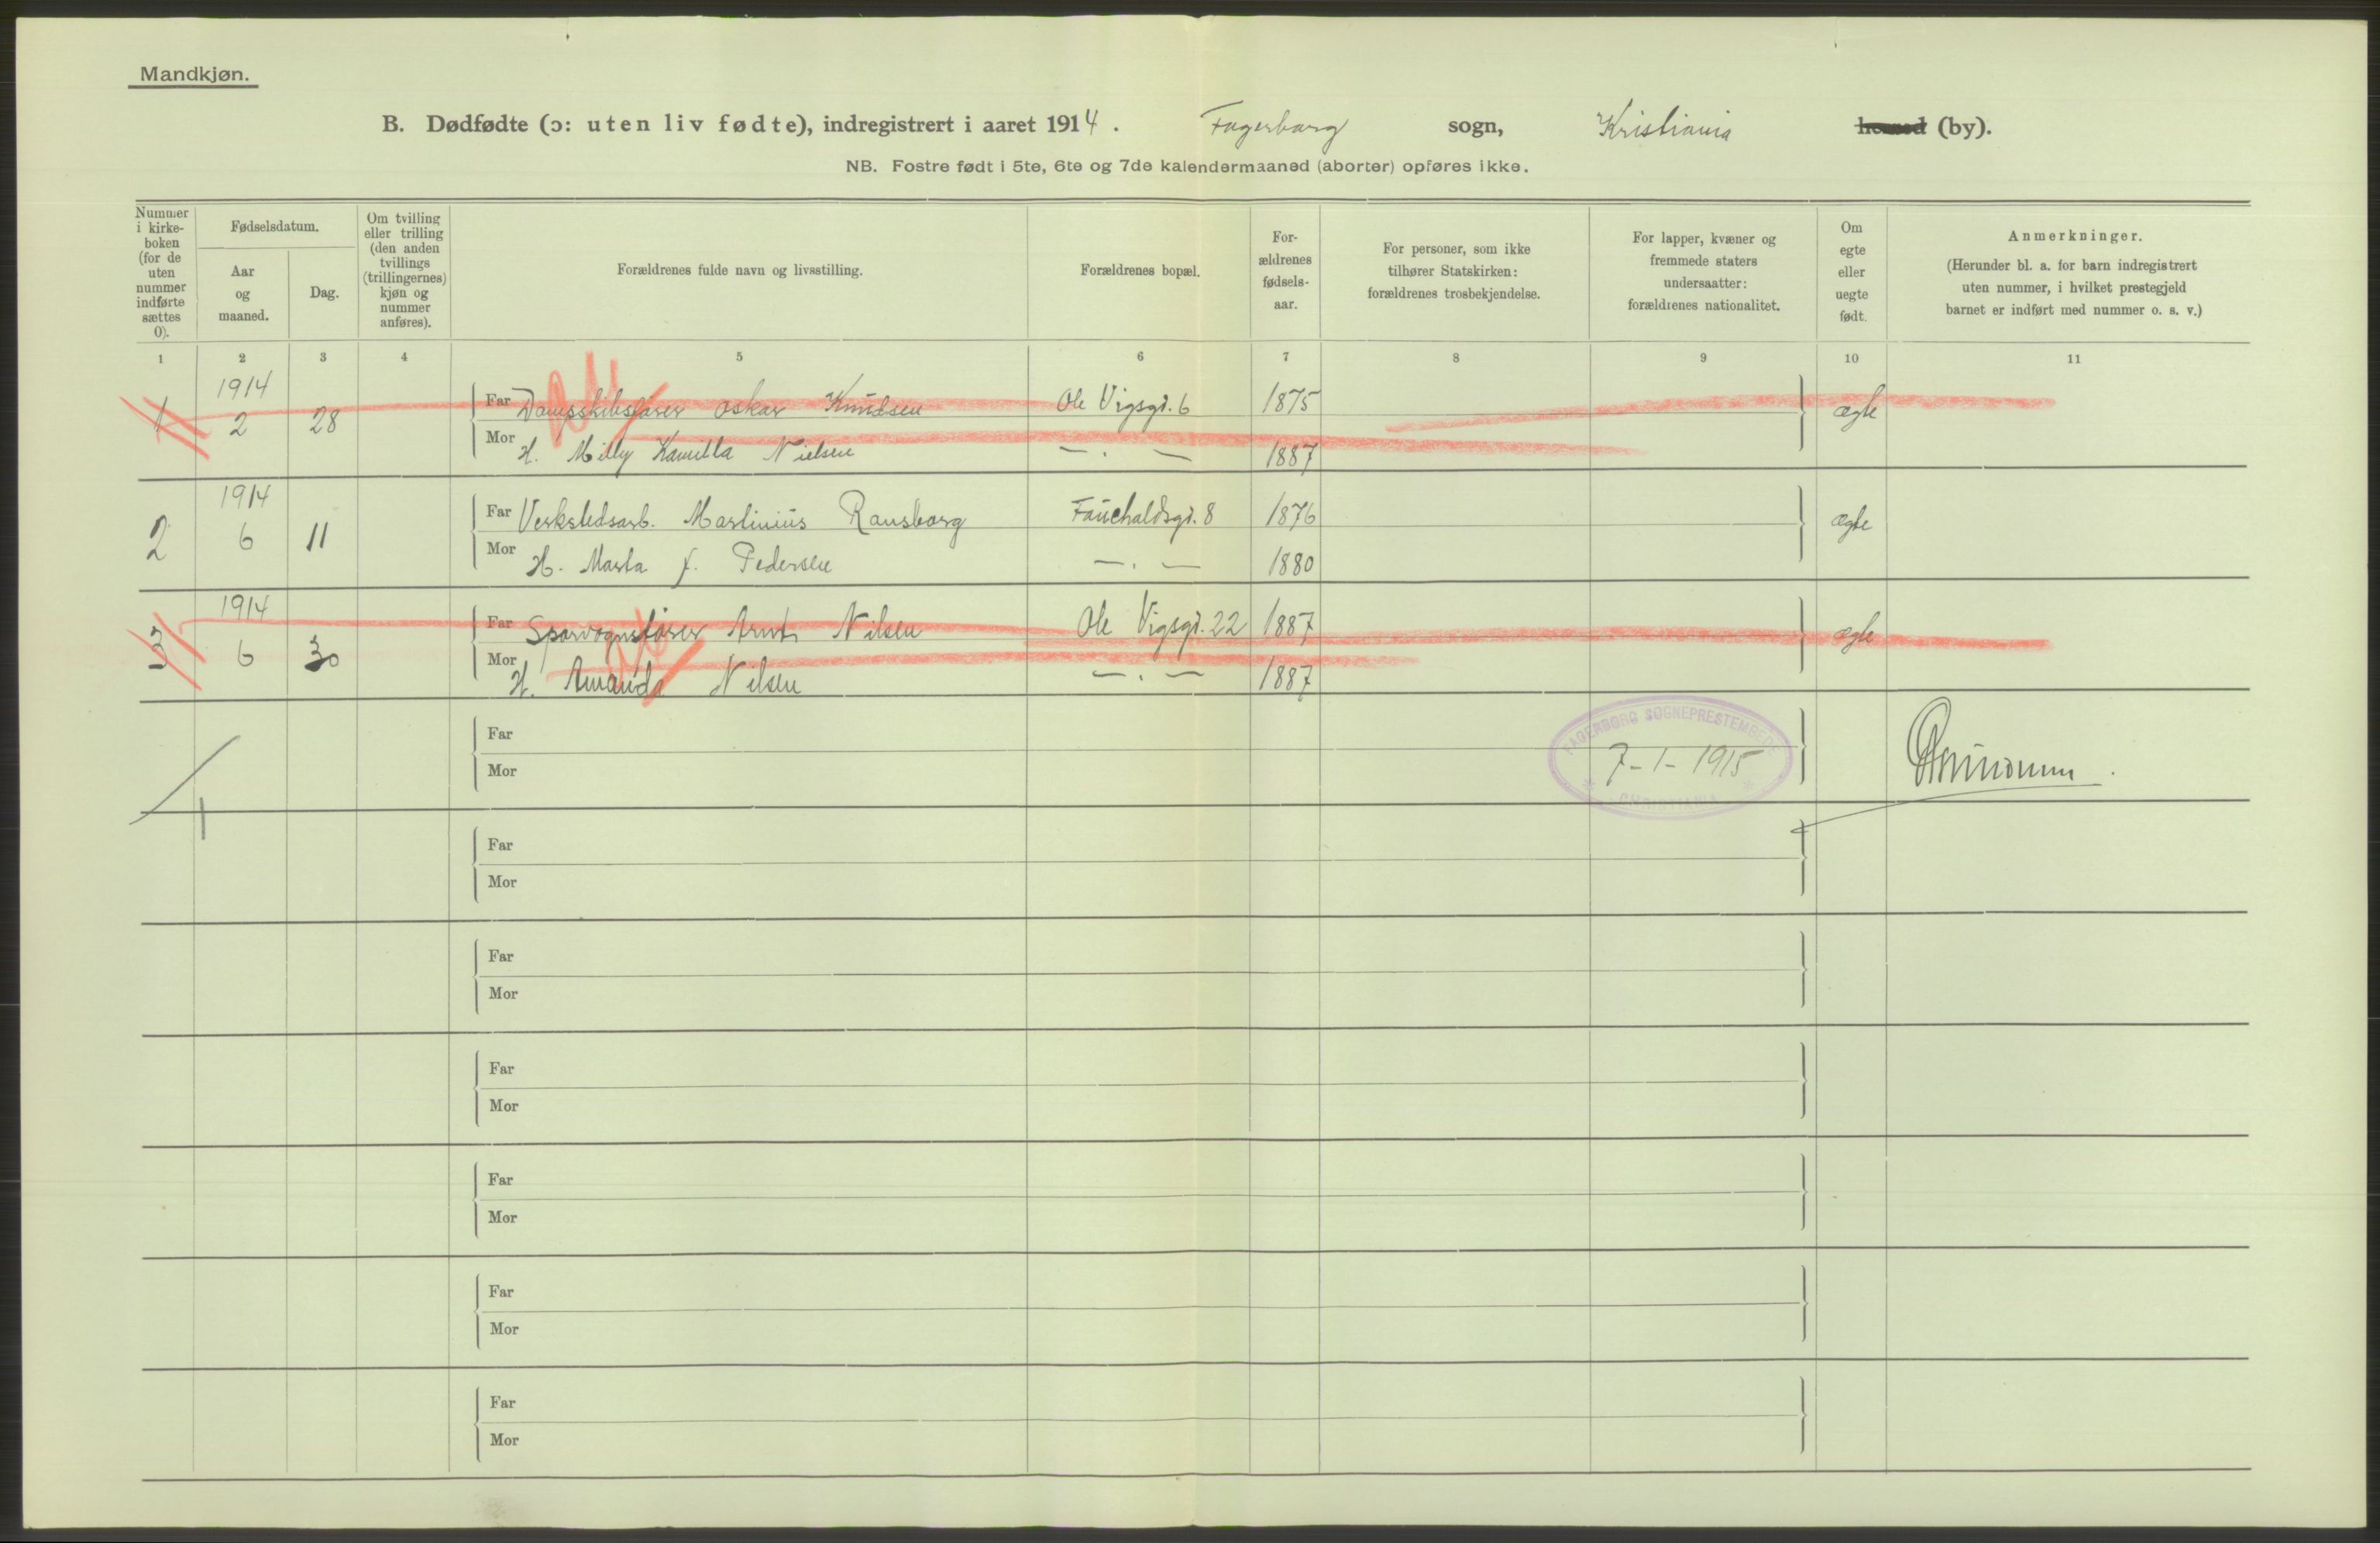 Mandkjøn.
B. Dødfødte (ɔ: uten liv fødte), indregistrert i aaret 1914. Fagerborg sogn, Kristiania herred (by).
NB. Fostre født i 5te, 6te og 7de kalendermaaned (aborter) opføres ikke.
Nummer i kirke-boken (for de uten nummer indførte sættes 0).
Fødselsdatum.
Aar og maaned.
Dag.
Om tvilling eller trilling (den anden tvillings (trillingernes) kjøn og nummer anføres).
Forældrenes fulde navn og livsstilling.
Forældrenes bopæl.
For-ældrenes fødsels-aar.
For personer, som ikke tilhører Statskirken: forældrenes trosbekjendelse.
For lapper, kvæner og fremmede staters undersaatter: forældrenes nationalitet.
Om egte eller uegte født.
Anmerkninger.
(Herunder bl. a. for barn indregistrert uten nummer, i hvilket prestegjeld barnet er indført med nummer o. s. v.)
1 2 3 4 5 6 7 8 9 10 11
1914
1 2 28 Far Dampskibsfører Oskar Knudsen Ole Vigsgd. 6 1875 ægte
Mor H. Milly Kamilla Nielsen — . — 1887
1914
2 6 11 Far Verkstedsarb. Martinius Ransborg Fauchaldsgd. 8 1876 ægte
Mor H. Marta f. Pedersen — . — 1880
1914
3 6 30 Far Sporvognsfører Arnt Nilsen Ole Vigsgd. 22 1887 ægte
Mor H. Amanda Nilsen — . — 1887
Far
Mor
FAGERBORG SOGNEPRESTEMBEDE
7-1-1915
CHRISTIANIA
Far
Mor
Far
Mor
Far
Mor
Far
Mor
Far
Mor
Far
Mor